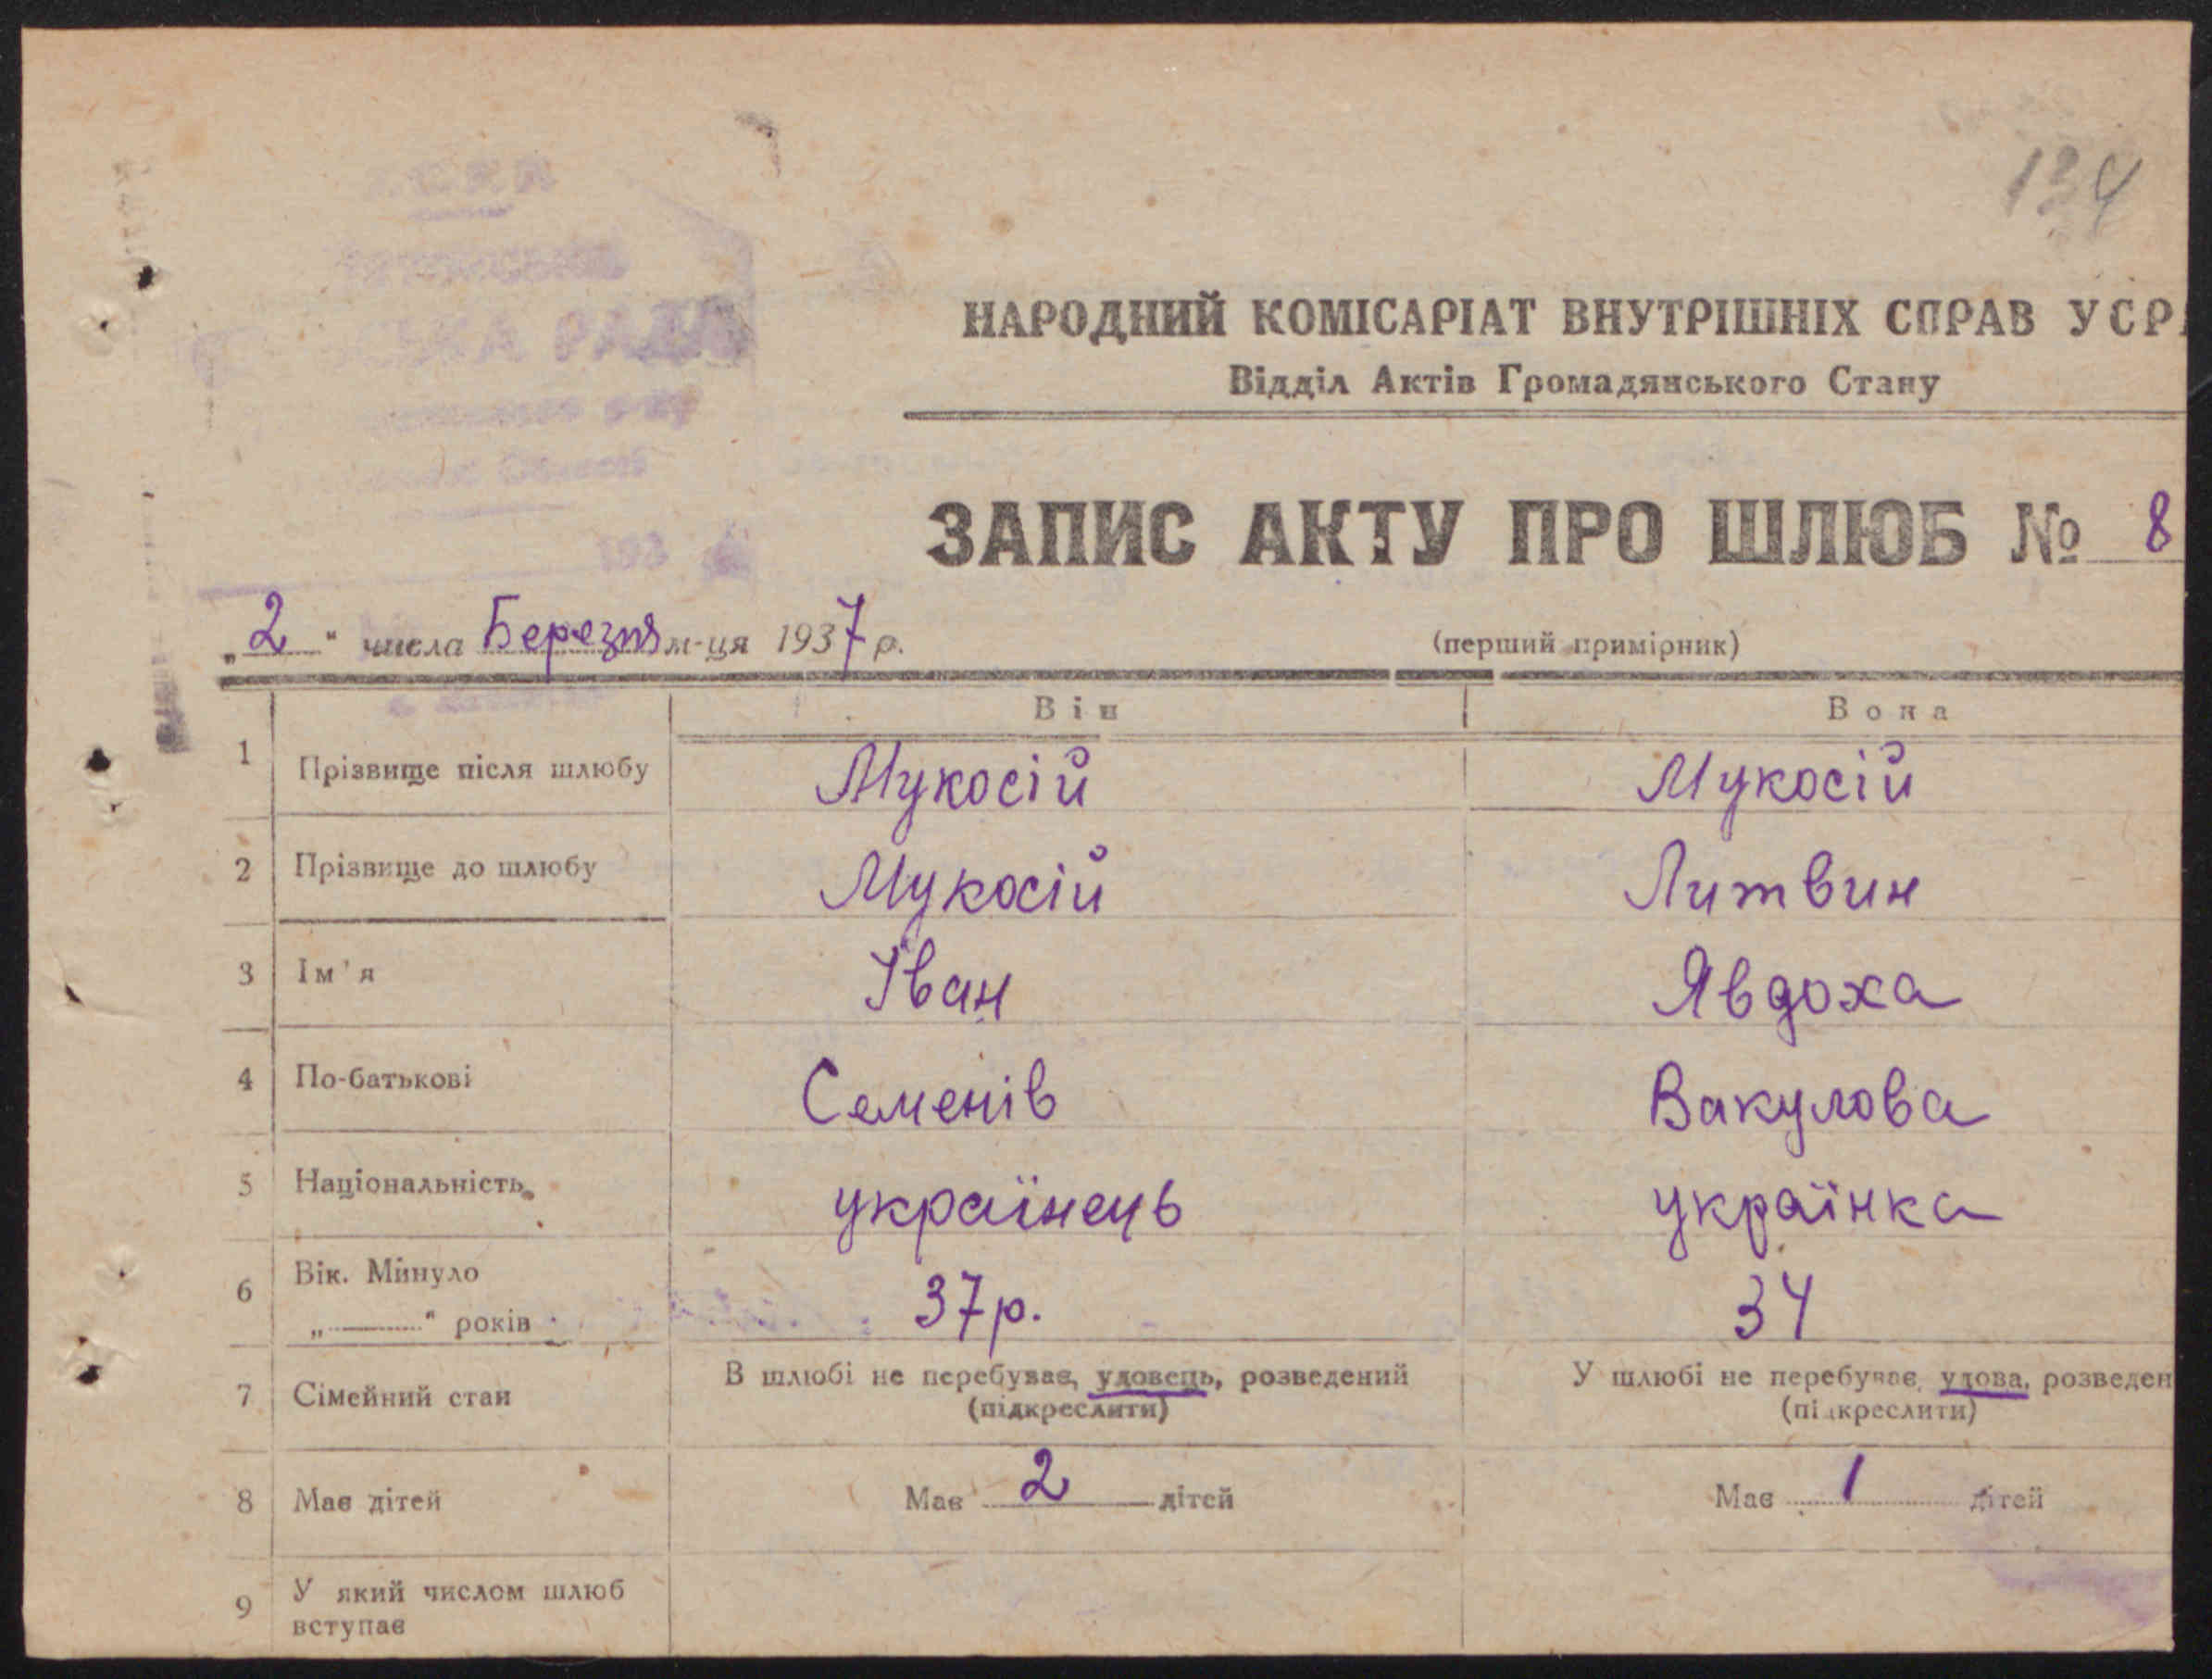 134
СЬКА РАДА
193
НАРОДНИЙ КОМІСАРІАТ ВНУТРІШНІХ СПРАВ УСР
Відділ Актів Громадянського Стану
ЗАПИС АКТУ ПРО ШЛЮБ № 8
„2" числа Березня м-ця 1937 р.
(перший примірник)
Він Вона
1 Прізвище після шлюбу Мукосій Мукосій
2 Прізвище до шлюбу Мукосій Литвин
3 Ім'я Іван Явдоха
4 По-батькові Семенів Вакулова
5 Національність українець українка
6 Вік. Минуло 37р. 34
„ " років
7 Сімейний стан В шлюбі не перебуває, удовець, розведений У шлюбі не перебуває, удова, розведен
(підкреслити) (підкреслити)
8 Має дітей Має 2 дітей Має 1 дітей
9 У який числом шлюб
вступає